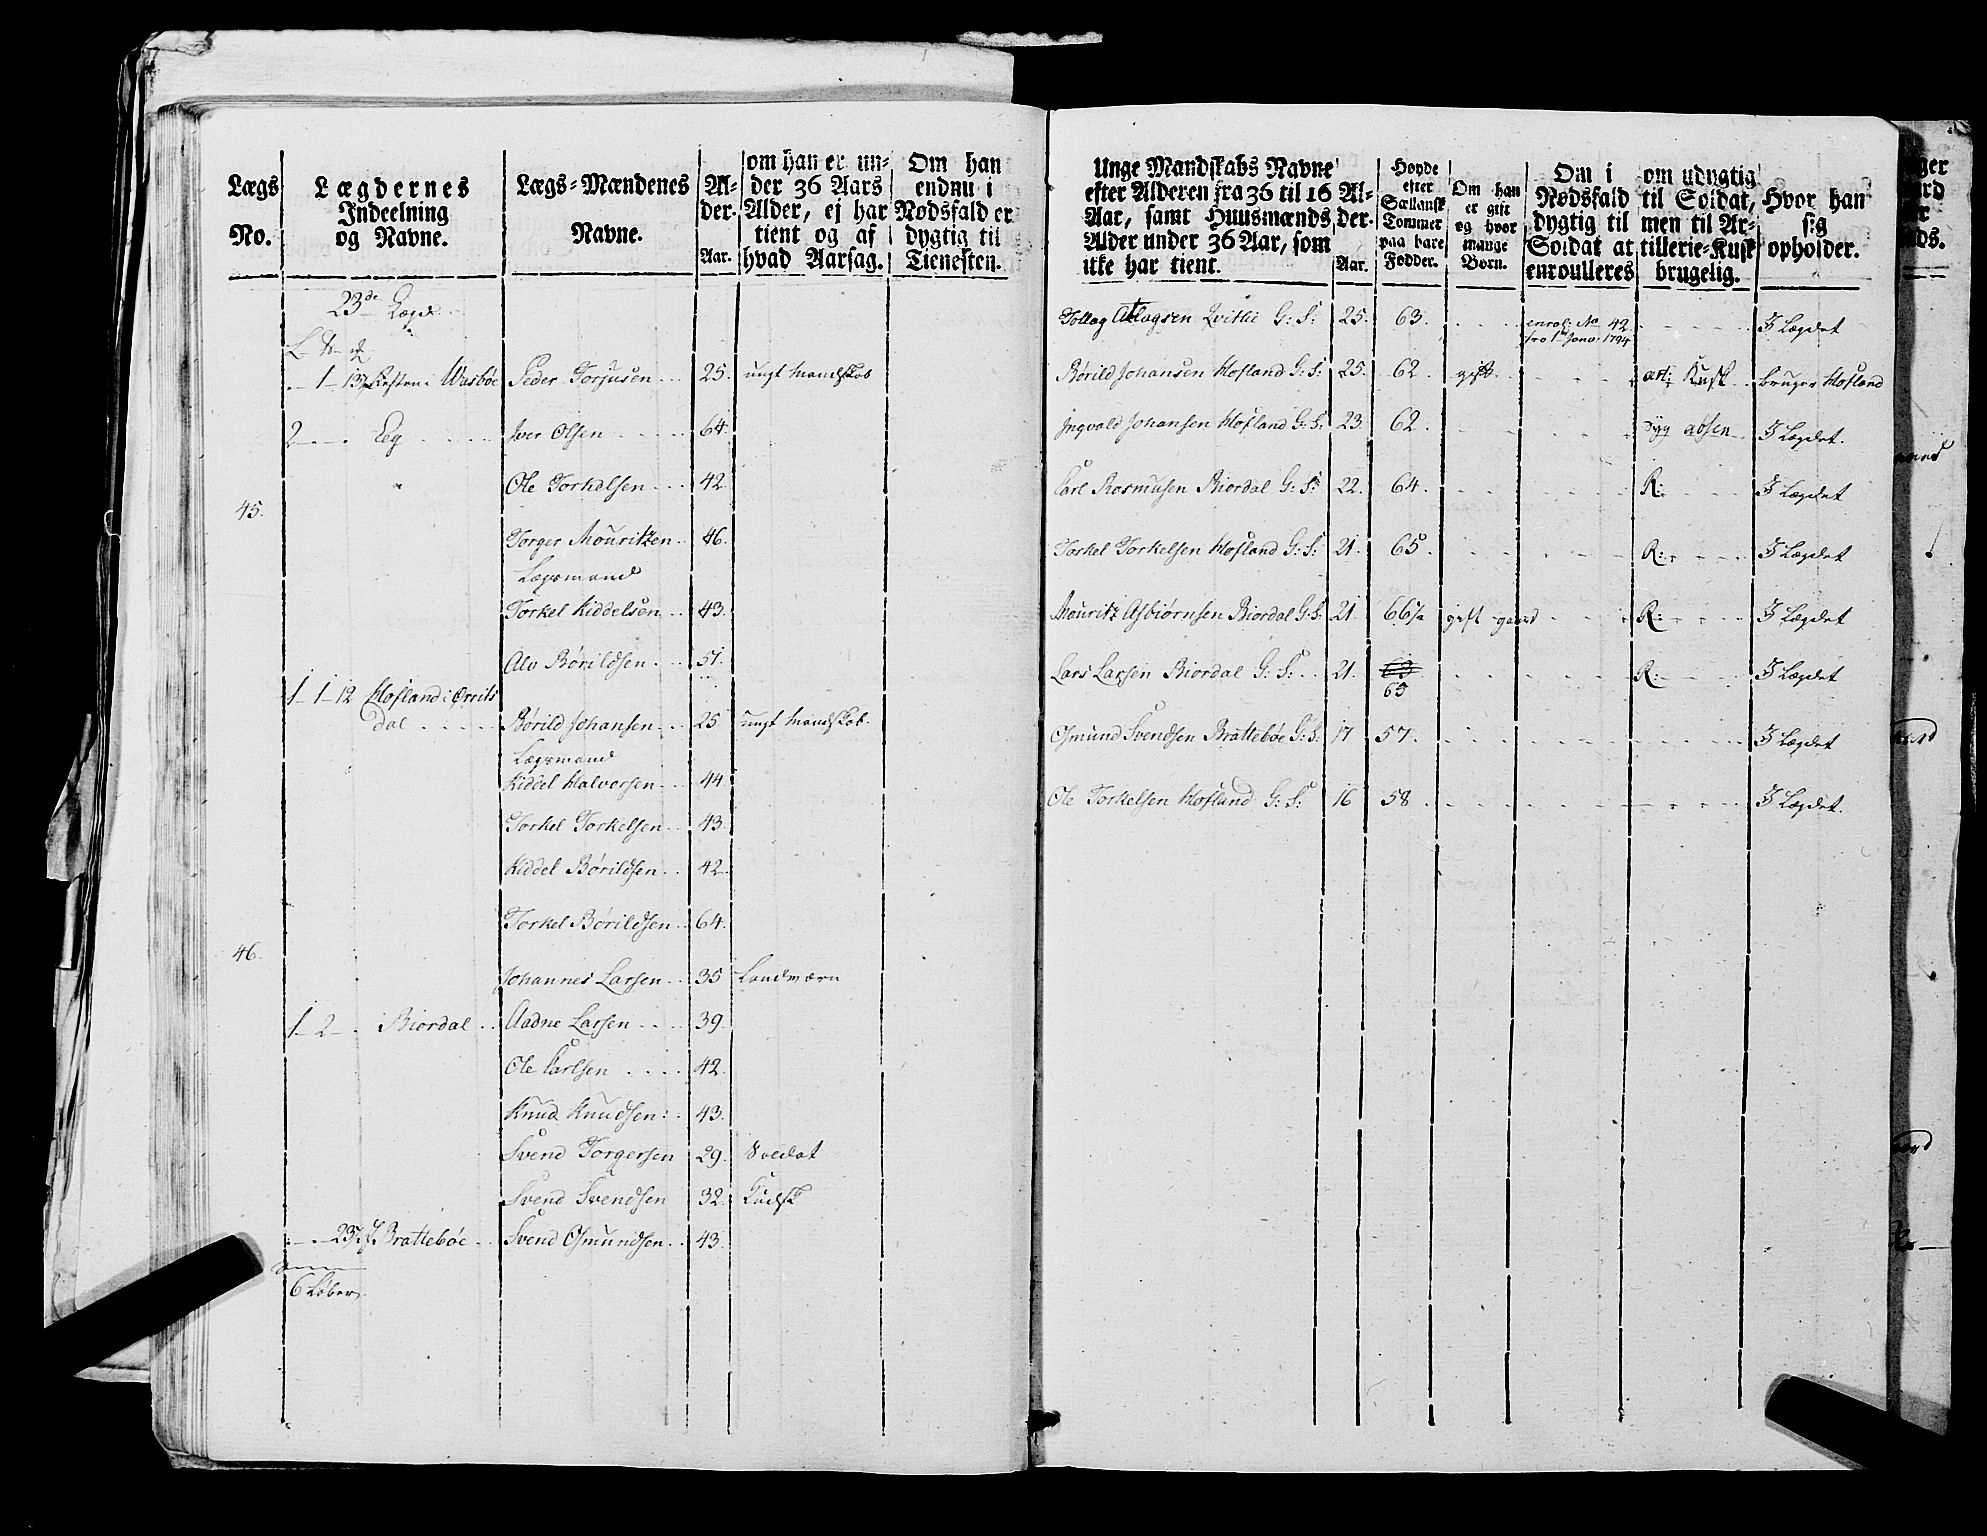 Lægs No.
Lægdernes Indeelning og Navne.
Lægs-Mændenes Navne.
Al-der. Aar.
om han er un-der 36 Aars Alder, ej har tient og af hvad Aarsag.
Om han endnu i Nødsfald er dygtig til Tienesten.
23de Lægd
1 Resten i Wasbøe Peder Torjusen 25. ungt Mandskab
2 Eeg Iver Olsen 64.
Ole Torkelsen 42.
45.
Torger Mouritzen 46.
Lægsmand
Torkel Kiddelsen 43.
Alv Børildsen 51.
1 1 12 Hofland i Ørrits
dal Børild Johansen 25 ungt Mandskab.
Lægsmand
Kiddel Halvorsen 44.
Torkel Torkelsen 43.
Kiddel Børildsen 42.
Torkel Børildsen 64.
46.
Johannes Larsen 35 Landværn
1 2 Biordal Aadne Larsen 39.
Ole Carlsen 42.
Knud Knudsen 43.
Svend Torgersen 29. Soldat
Svend Svendsen 32. Kudsk
Brattebøe Svend Osmundsen 43.
6 Løber.
Unge Mandskabs Navne efter Alderen fra 36 til 16 Aar, samt Huusmænds Alder under 36 Aar, som ikke har tient.
Al-der. Aar.
Høyde efter Sællansk Tommer paa bare Fødder.
Om han er gift og hvor mange Børn.
Om i Nødsfald dygtig til Soldat at enroulleres
om udygtig til Soldat, men til Ar-tillerie-Kusk brugelig.
Hvor han sig opholder.
Tollag Atlagsen Qvitlie G: S: 25. 63. enrol: No 42 I Lægdet
fra 1te Janv: 1794
Børild Johansen Hofland G: S: 25. 62 gift art: Kusk bruger Hofland
Ingvald Johansen Hofland G: S: 23 62. I Lægdet.
Carl Rasmusen Biordal G: S: 22. 64. R: I Lægdet
Torkel Torkelsen Hofland G: S: 21. 65. R: I Lægdet
Mouritz Asbiørnsen Biordal G: S: 21 66½ gift R: I Lægdet
Lars Larsen Biordal G: S: 21. 63 R: I Lægdet
65
Osmund Svendsen Brattebøe G: S: 17 57. I Lægdet
Ole Torkelsen Hofland G: S: 16 58. I Lægdet.